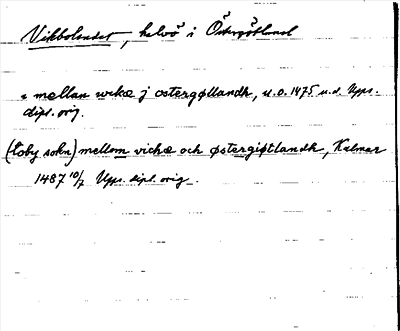 Vikbolandet, halvö i Östergötland
" mellan wikæ j ostergøllandh, u.o. 1475 u.d. Upps.
dipl. orig.
(Toby sokn) mellom vichæ och østergiøtlandh, Kalmar
1487 10/7 Upps. dipl. orig.